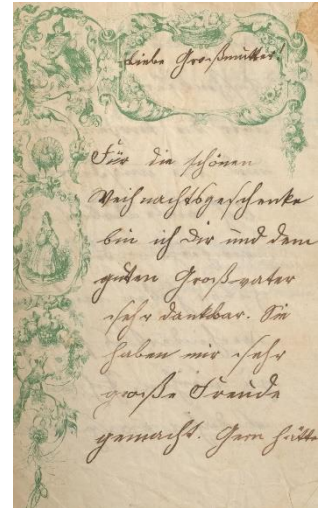 Liebe Großmutter!
Für die schönen
Weihnachtsgeschenke
bin ich Dir und dem
guten Großvater
sehr dankbar. Sie
haben mir sehr
große Freude
gemacht. Gern hätte